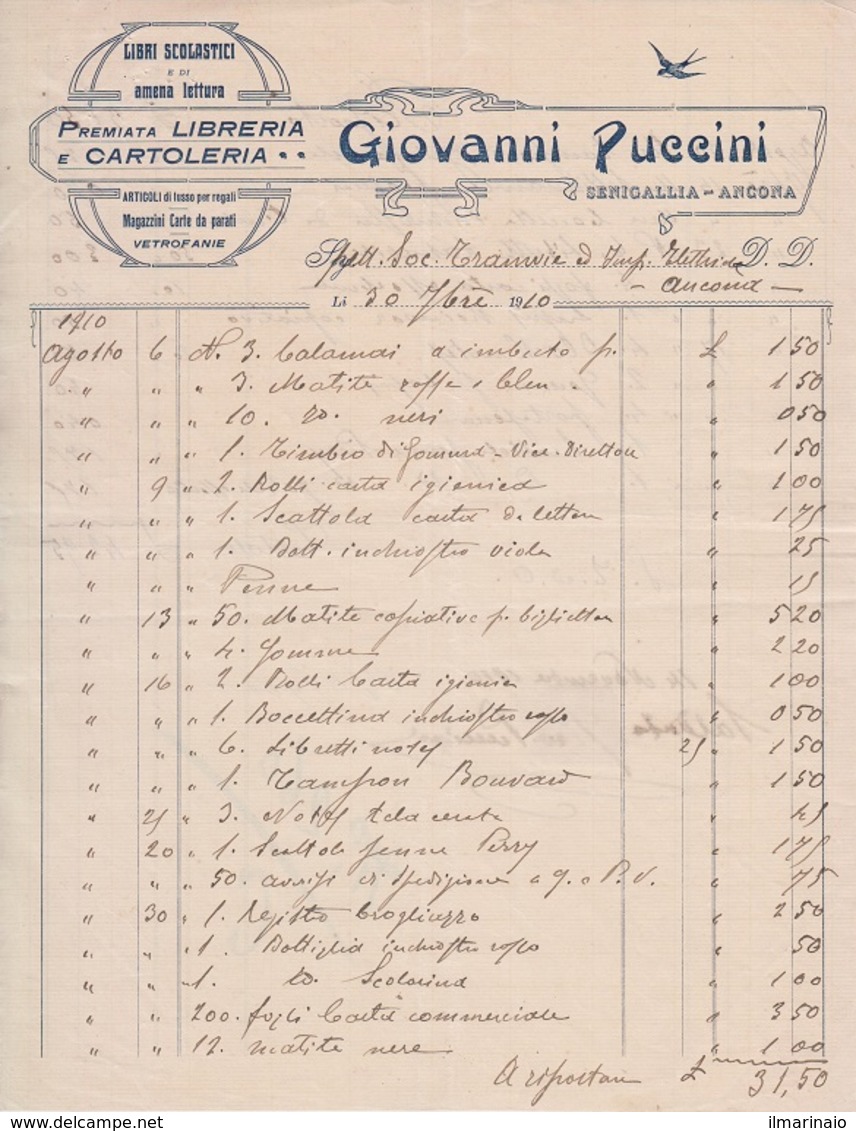 LIBRI SCOLASTICI
E DI
amena lettura
PREMIATA LIBRERIA
E CARTOLERIA
Giovanni Puccini
SENIGALLIA - ANCONA
ARTICOLI di lusso per regali
Magazzini Carte da parati
VETROFANIE
Spett. Soc. Tramvie ed Imp. Elettriche D. D.
- Ancona -
Li 30 7bre 1910
1910
Agosto 6 N. 3. Calamai a imbuto p. £ 1 50
" " " 3. Matite rosse e bleu . " 1 50
" " " 10. do. neri " 0 50
" " " 1. Timbro di Gomma - Vice-Direttore " 1 50
" 9 " 2. Rolli carta igienica " 1 00
" " " 1. Scattola carta da lettere " 1 75
" " " 1. Bott. inchiostro viola " 25
" " " Penne " 15
" 13 " 50. Matite copiative p. bigliettari " 5 20
" " " 4. Gomme " 2 20
" 16 " 2. Rolli Carta igienica " 1 00
" " " 1. Boccettina inchiostro rosso " 0 50
" " " 6. Libretti notes 25 " 1 50
" " " 1. Tampon Bouvard " 1 50
" 25 " 3. Notes tela cerata " 45
" 20 " 1. Scattola penne Perry " 1 75
" " " 50. avvisi di spedizione a g. e P. V. " 75
" 30 " 1. Registro brogliazzo " 2 50
" " " 1. Bottiglia inchiostro rosso " 50
" " " 1. do. Scolorina " 1 00
" " " 200. fogli Carta commerciale " 3 50
" " " 12. matite nere " 1 00
A riportare £ 31,50
delcampe.net
ilmarinaio